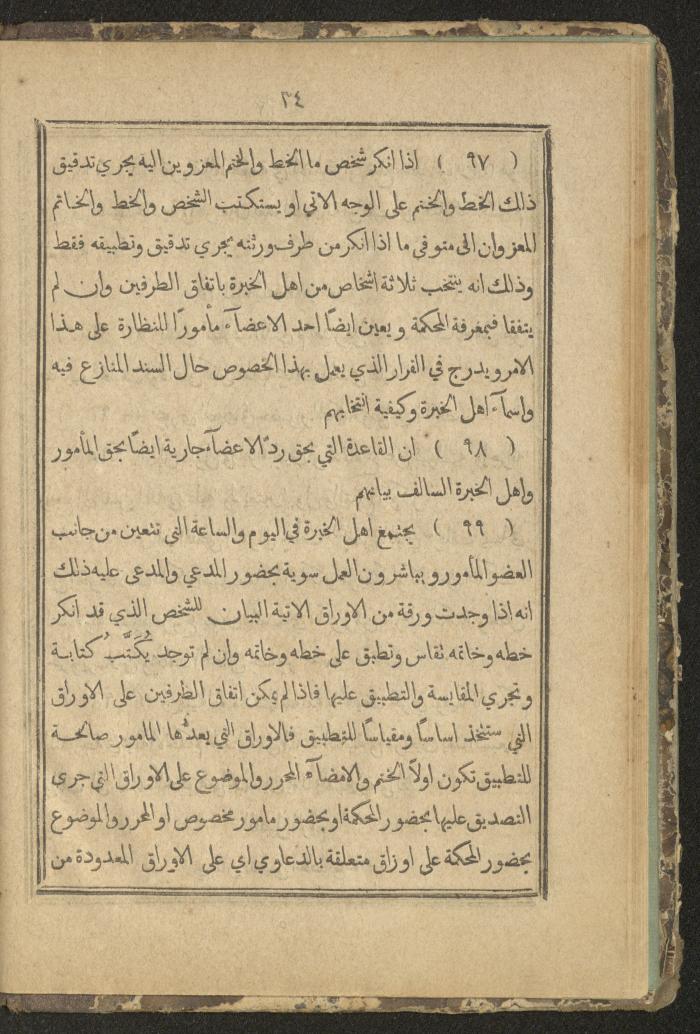 ٣٤
( ٩٧ ) اذا انكر شخص ما الخط والختم المعزوين اليه يجري تدقيق
ذلك الخط والختم على الوجه الاتي او يستكتب الشخص والخط والخاتم
المعزوان الى متوفى ما اذا انكر من طرف ورثته يجري تدقيق وتطبيقه فقط
وذلك انه ينتخب ثلاثة اشخاص من اهل الخبرة باتفاق الطرفين وان لم
يتفقا فبمعرفة المحكمة ويعين ايضًا احد الاعضآء مأمورًا للنظارة على هذا
الامر ويدرج في القرار الذي يعمل بهذا الخصوص حال السند المنازع فيه
واسمآء اهل الخبرة وكيفية انتخابهم
( ٩٨ ) ان القاعدة التي بحق ردّ الاعضآء جارية ايضًا بحق المأمور
واهل الخبرة السالف بيانهم
( ٩٩ ) يجتمع اهل الخبرة في اليوم والساعة التي تتعين من جانب
العضو المأمور ويباشرون العمل سوية بحضور المدعي والمدعى عليه ذلك
انه اذا وجدت ورقة من الاوراق الاتية البيان للشخص الذي قد انكر
خطه وخاتمه تقاس وتطبق على خطه وخاتمه وان لم توجد يُكَتَّب كتابة
وتجري المقايسة والتطبيق عليها فاذا لم يمكن اتفاق الطرفين على الاوراق
التي ستتخذ اساسًا ومقياسًا للتطبيق فالاوراق التي يعدّها المامور صالحة
للتطبيق تكون اولاً الختم والامضآء المحرر والموضوع على الاوراق التي جرى
التصديق عليها بحضور المحكمة او بحضور مامور مخصوص او المحرر والموضوع
بحضور المحكمة على اوراق متعلقة بالدعاوي اي على الاوراق المعدودة من